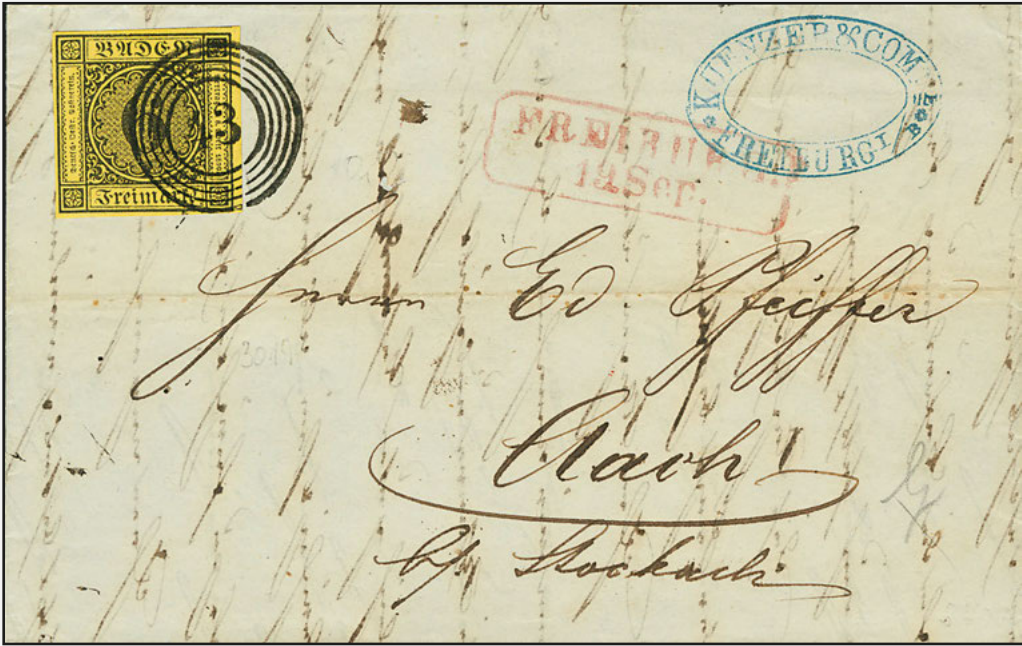 BADEN
Freimarke
43
FREIBURG
19 Sep.
KUENZER & COMP.
FREIBURG I B
Herrn Ed Pfeiffer
Aach
b/ Stockach
3019